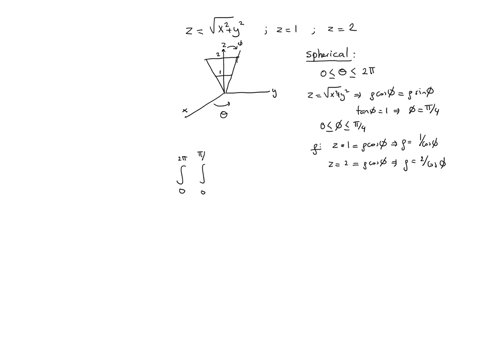 z = √x²+y² ; z=1 ; z = 2
z
φ
2
1
y
x
θ
Spherical:
0 ≤ θ ≤ 2π
z = √x²+y² ⇒ ρcosφ = ρsinφ
tanφ = 1 ⇒ φ = π/4
0 ≤ φ ≤ π/4
ρ: z = 1 = ρcosφ ⇒ ρ = 1/cosφ
z = 2 = ρcosφ ⇒ ρ = 2/cosφ
2π π/
∫ ∫
0 0